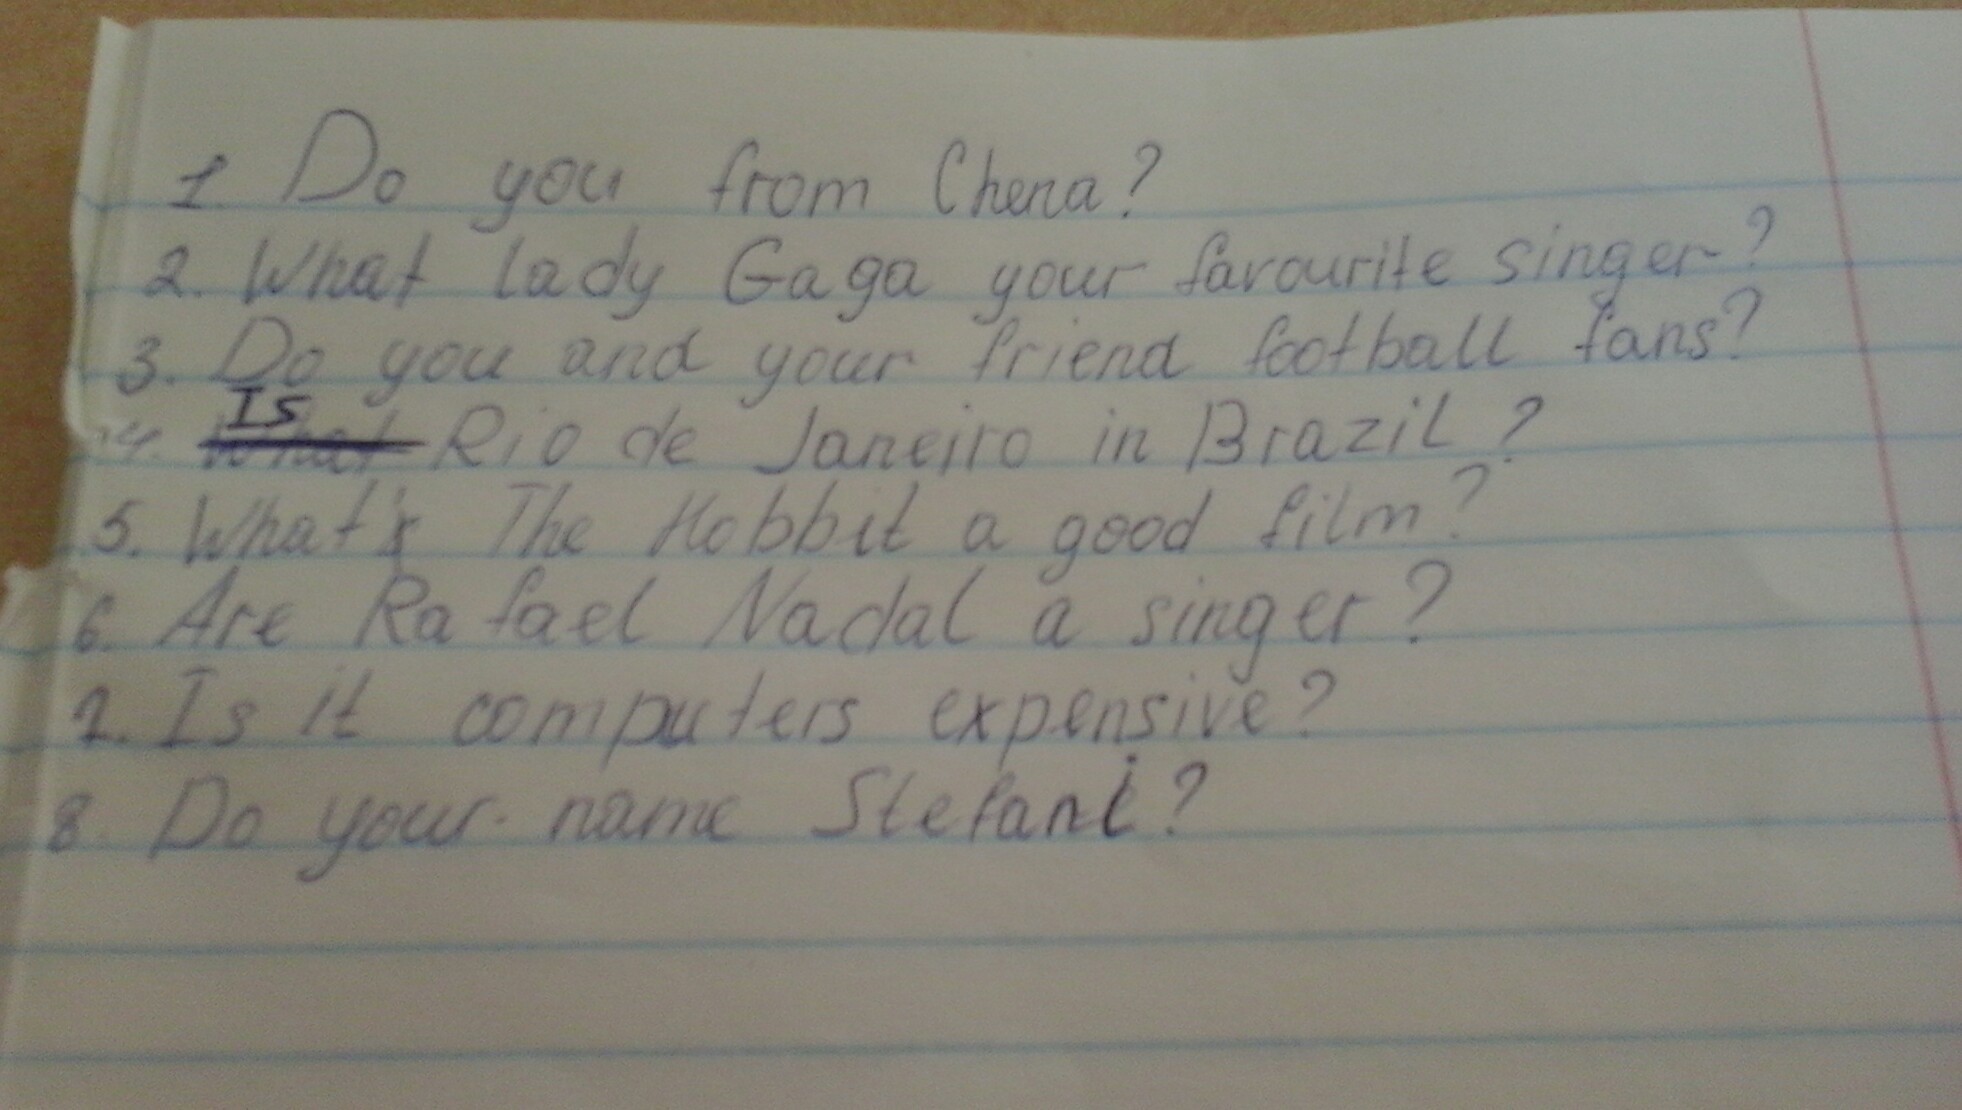 1. Do you from Chena?
2. What lady Gaga your favourite singer?
3. Do you and your friend football fans?
Is
4. What Rio de Janeiro in Brazil?
5. What's The Hobbit a good film?
6. Are Rafael Nadal a singer?
7. Is it computers expensive?
8. Do your name Stefani?